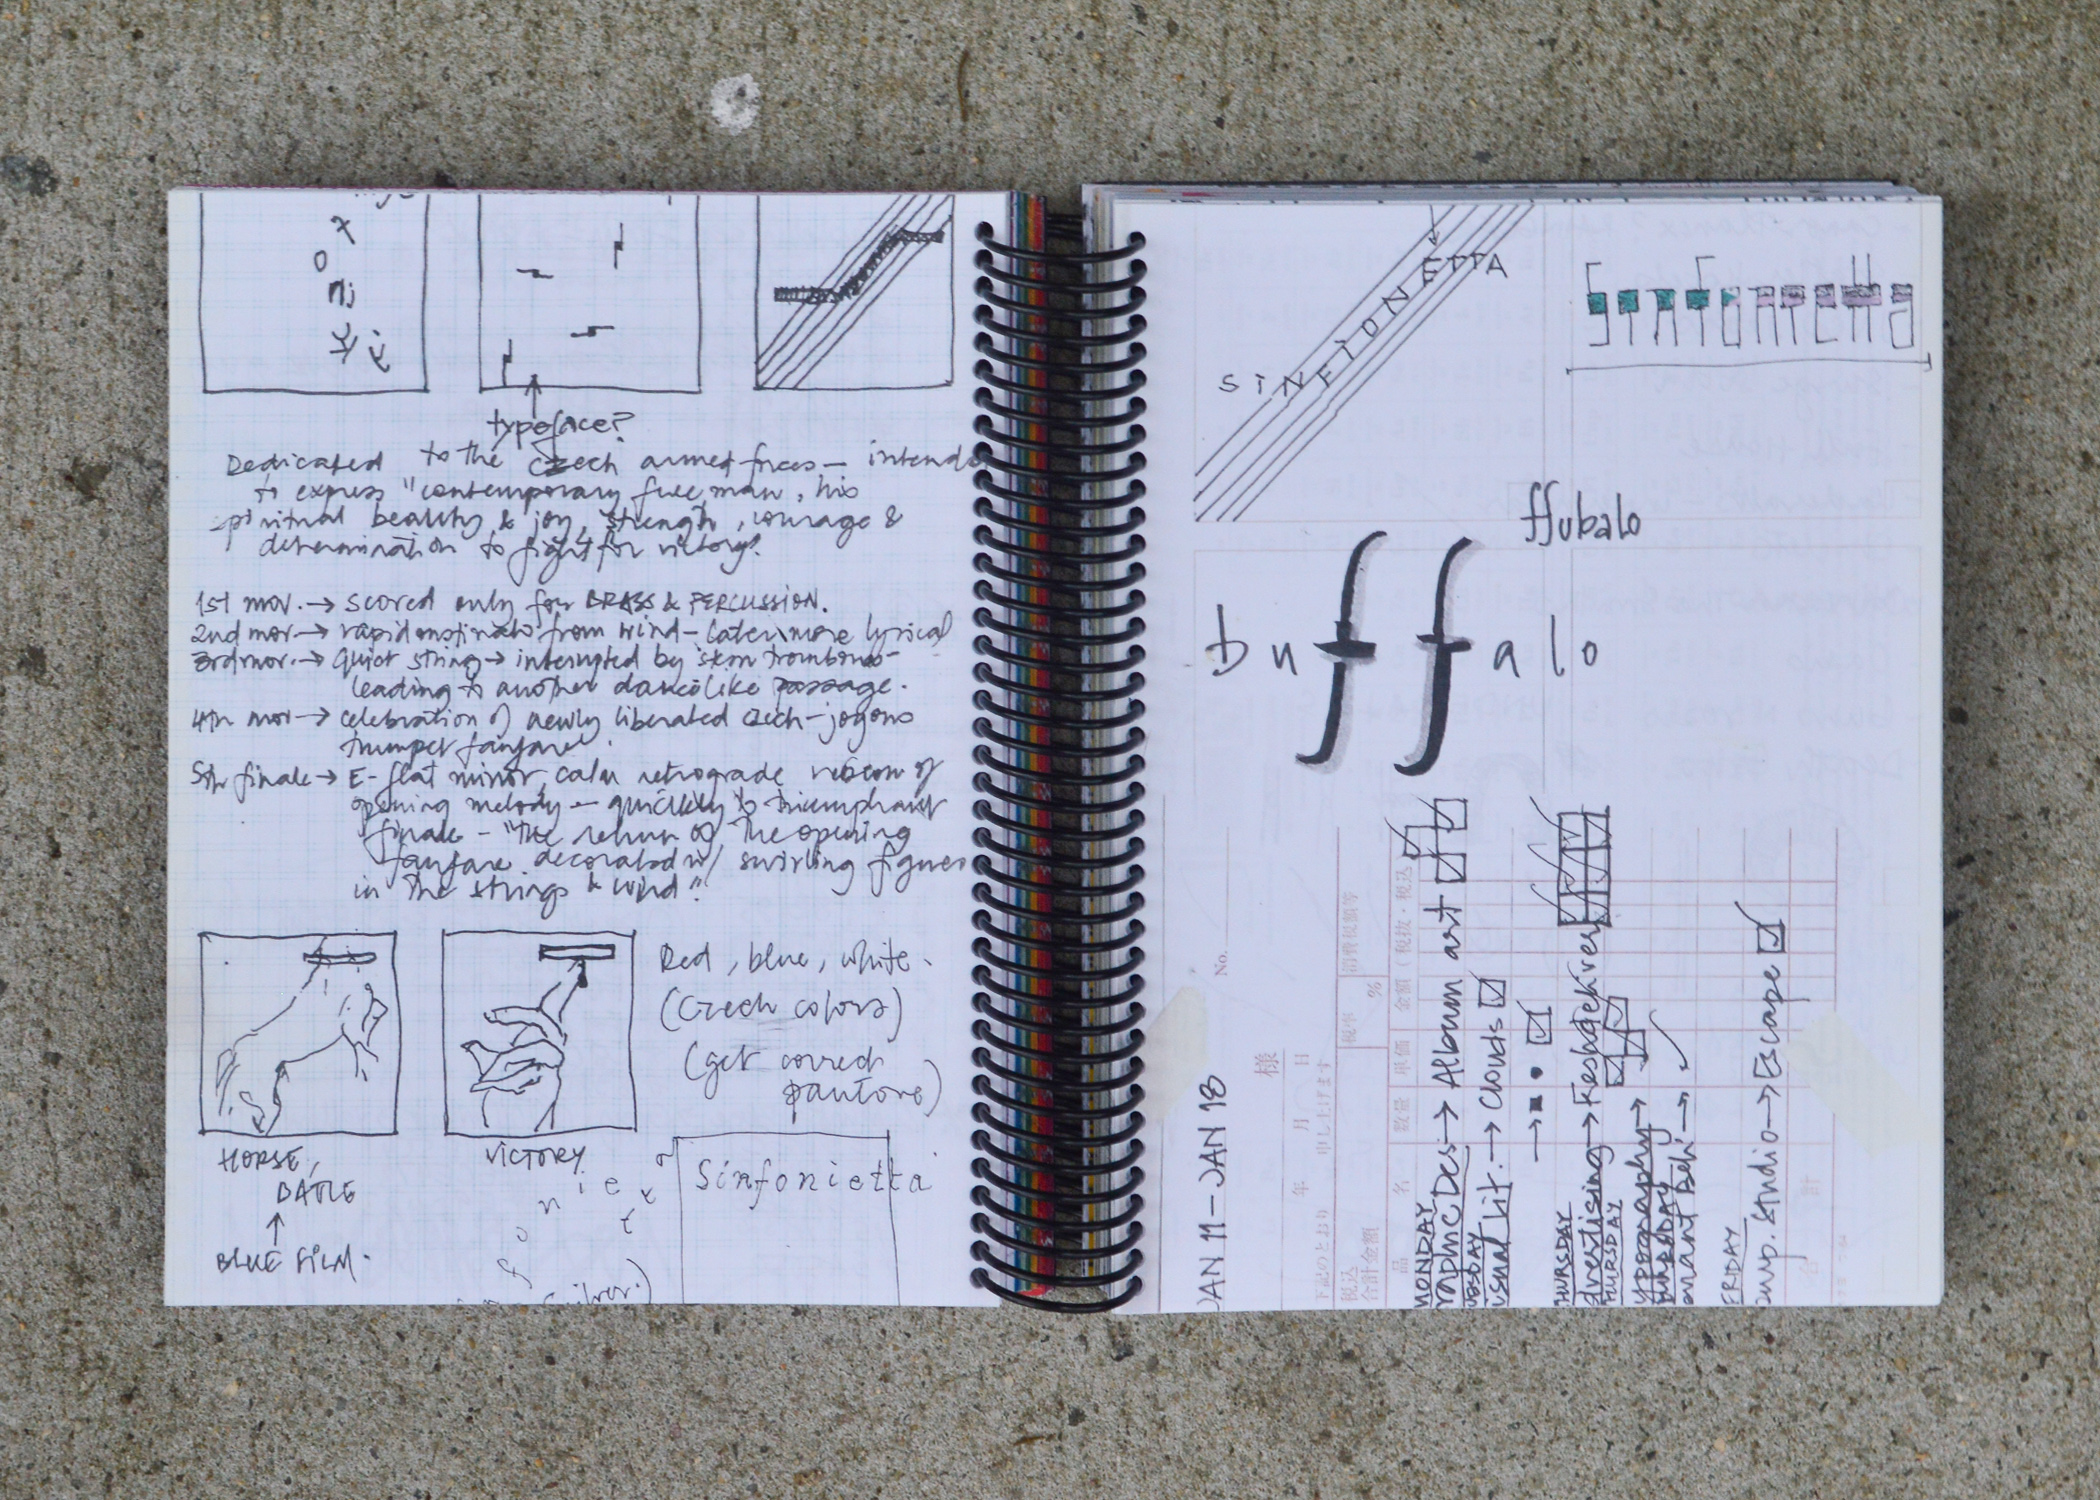 typeface?
Dedicated to the Czech armed forces – intended
to express "contemporary free man, his
spiritual beauty & joy, strength, courage &
determination to fight for victory".
1st mov. → scored only for BRASS & PERCUSSION.
2nd mov → rapid ostinato from wind – later more lyrical
3rd mov. → Quiet string → interrupted by stern trombones –
leading to another dancelike passage.
4th mov → celebration of newly liberated Czech – joyous
trumpet fanfare.
5th finale → E-flat minor, calm retrograde version of
opening melody – quickly to triumphant
finale – "The return of the opening
fanfare decorated w/ swirling figures
in the strings & wind".
Red, blue, white.
(Czech colors)
(get correct
pantone)
HORSE,
BATLE
BLUE FILM.
VICTORY
or
Sinfonietta
SINFIONETTA
ffubalo
buffalo
JAN 11 – JAN 18
MONDAY
Graphic Des → Album art
Visual Lit. → Clouds
→ ■ ●
THURSDAY
advertising →
THURSDAY
typography →
THURSDAY
FRIDAY
comp. studio → Escape
No.
様
年 月 日
下記のとおり申し上げます
税込
合計金額
税率 %
消費税額等
品 名
数量
単価
金額(税抜・税込)
合 計